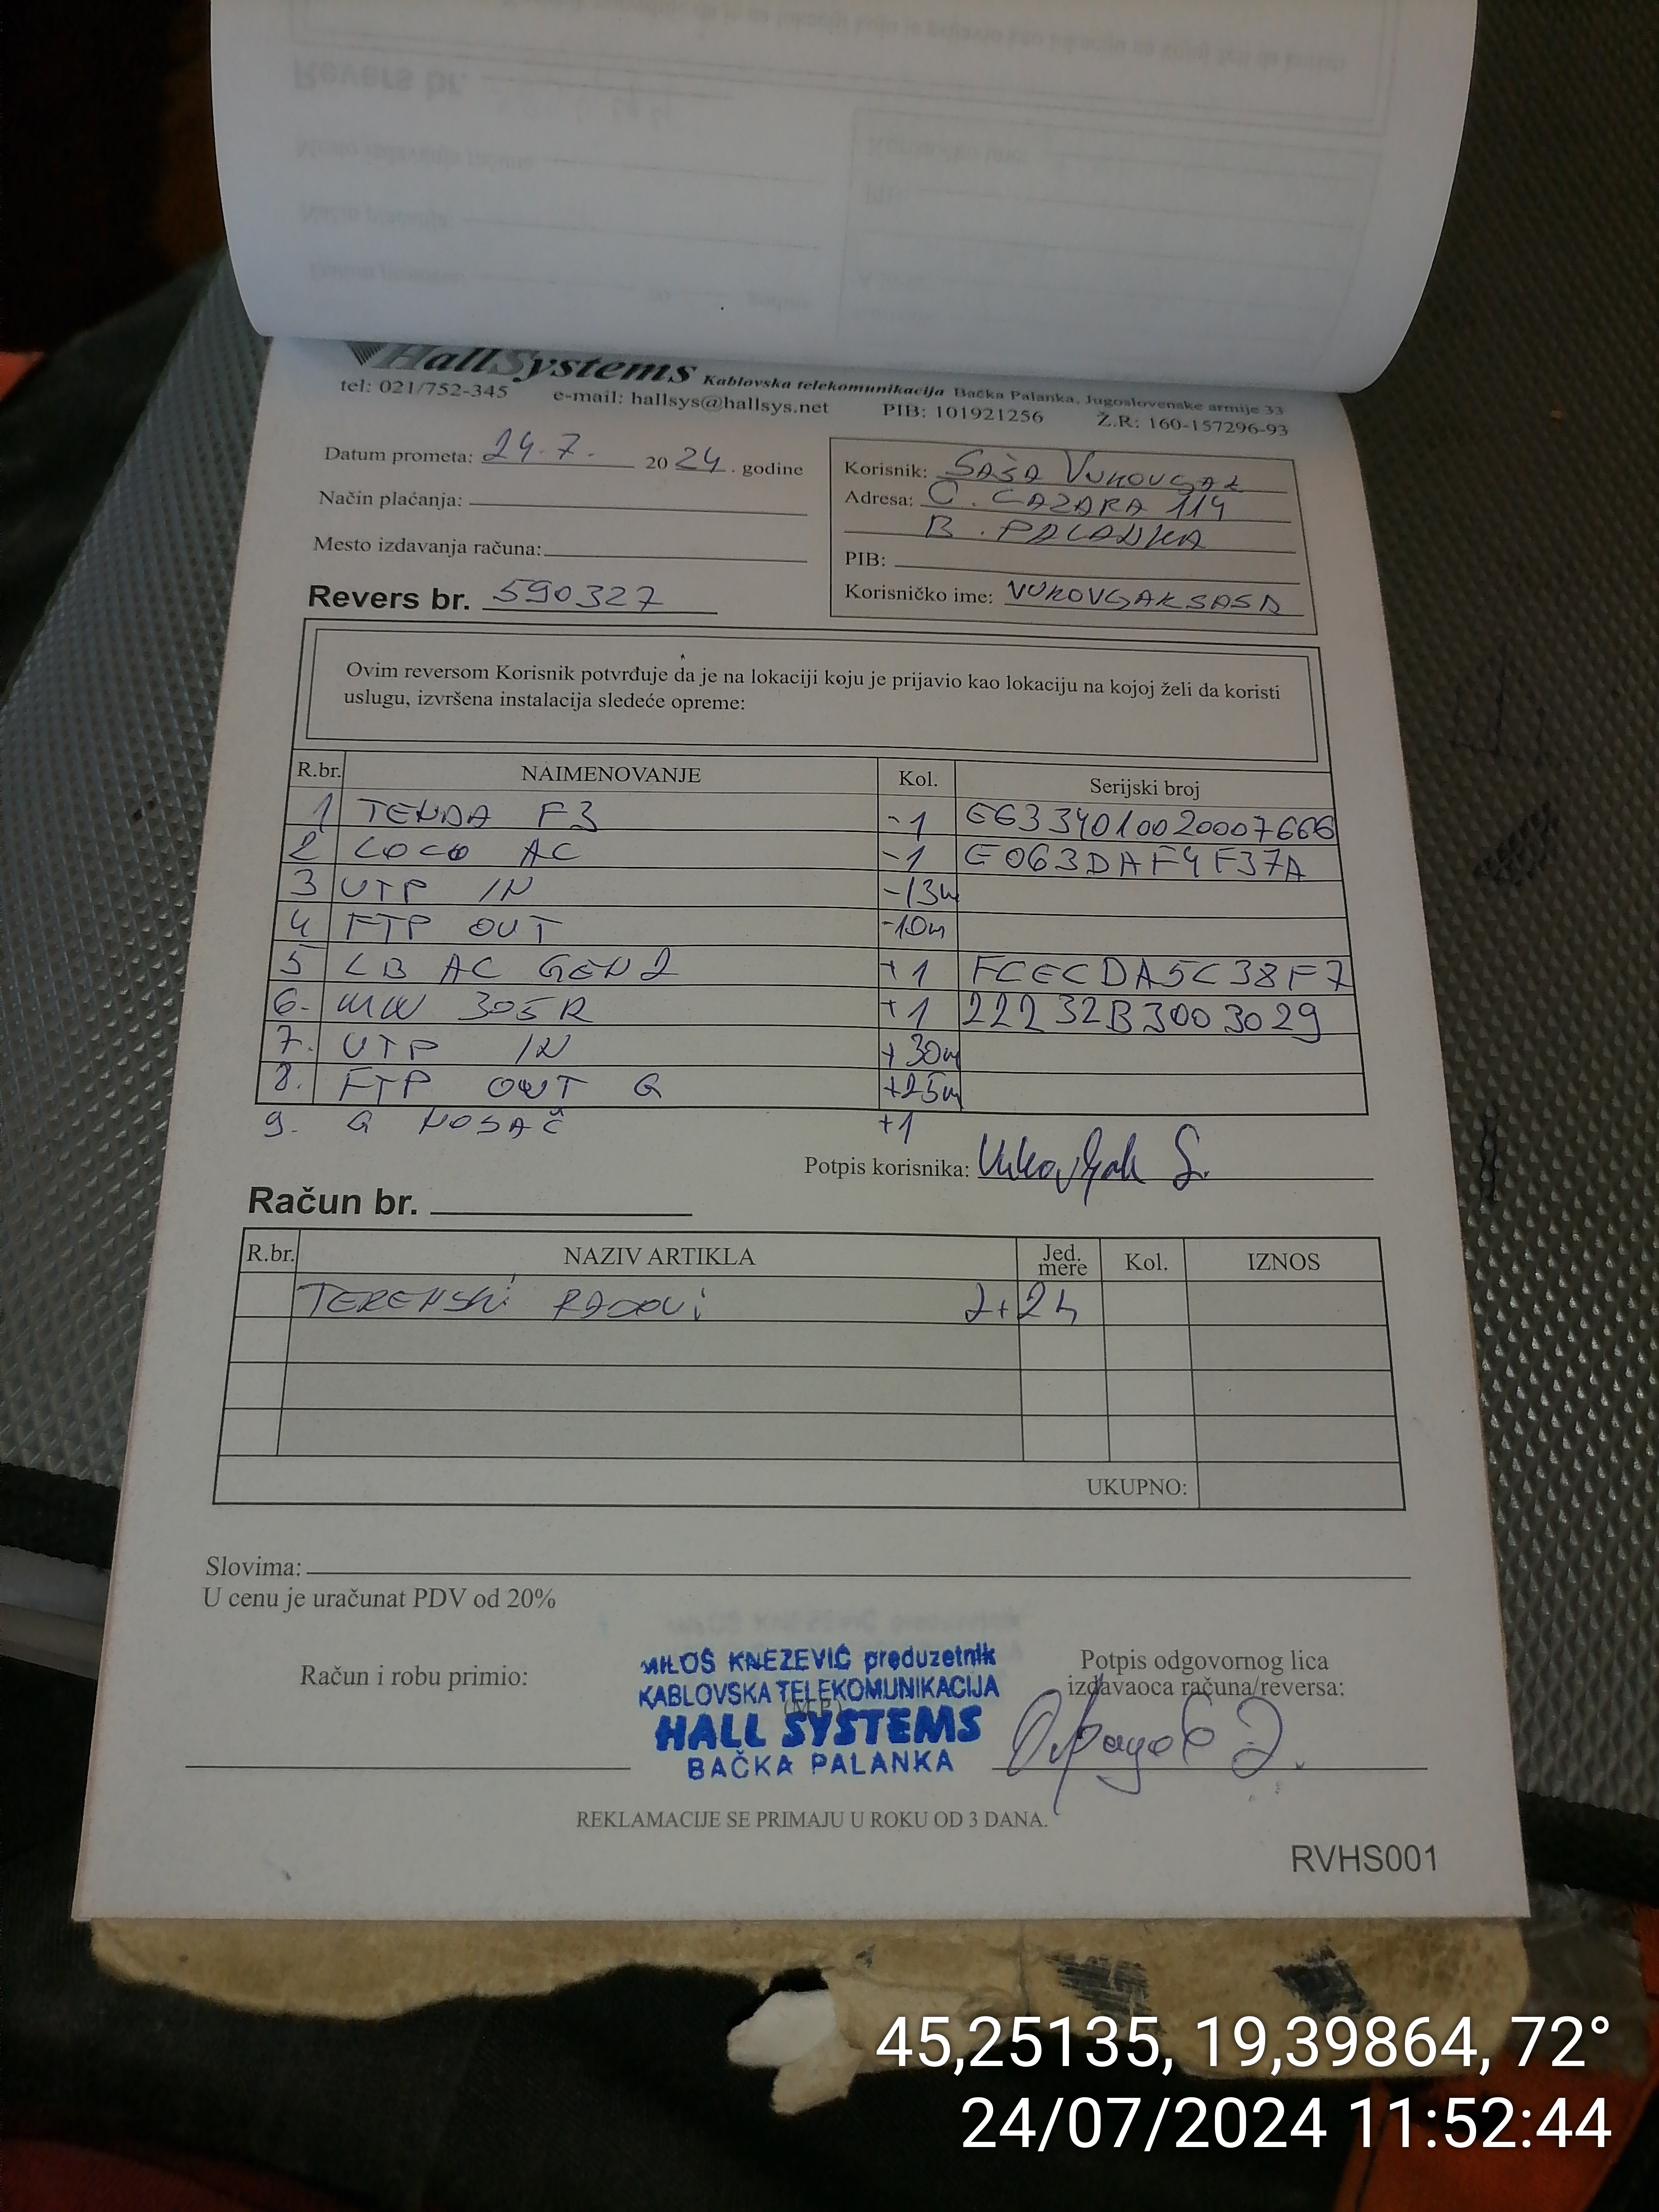 HallSystems Kablovska telekomunikacija Bačka Palanka, Jugoslovenske armije 33
tel: 021/752-345 e-mail: hallsys@hallsys.net PIB: 101921256 Ž.R: 160-157296-93
Datum prometa: 24.7. 2024. godine
Način plaćanja:
Mesto izdavanja računa:
Revers br. 590327
Korisnik: SAŠA VUKOVGAK
Adresa: C. LAZARA 114
B. PALANKA
PIB:
Korisničko ime: VUKOVGAKSASA
Ovim reversom Korisnik potvrđuje da je na lokaciji koju je prijavio kao lokaciju na kojoj želi da koristi
uslugu, izvršena instalacija sledeće opreme:
R.br. NAIMENOVANJE Kol. Serijski broj
1 TENDA F3 -1 E6334010020007666
2 LOCO AC -1 E063DAF4F37A
3 UTP IN -13m
4 FTP OUT -10m
5 LB AC GEN2 +1 FCECDA5C38F7
6. MW 305R +1 22232B3003029
7. UTP IN +30m
8. FTP OUT G +25m
9. G NOSAČ +1
Potpis korisnika: Vukovljak S.
Račun br.
R.br. NAZIV ARTIKLA Jed. mere Kol. IZNOS
TERENSKi RADOVi 2+2h
UKUPNO:
Slovima:
U cenu je uračunat PDV od 20%
Račun i robu primio:
MILOŠ KNEŽEVIĆ preduzetnik
KABLOVSKA TELEKOMUNIKACIJA
(M.P.)
HALL SYSTEMS
BAČKA PALANKA
Potpis odgovornog lica
izdavaoca računa/reversa:
REKLAMACIJE SE PRIMAJU U ROKU OD 3 DANA.
RVHS001
45,25135, 19,39864, 72°
24/07/2024 11:52:44